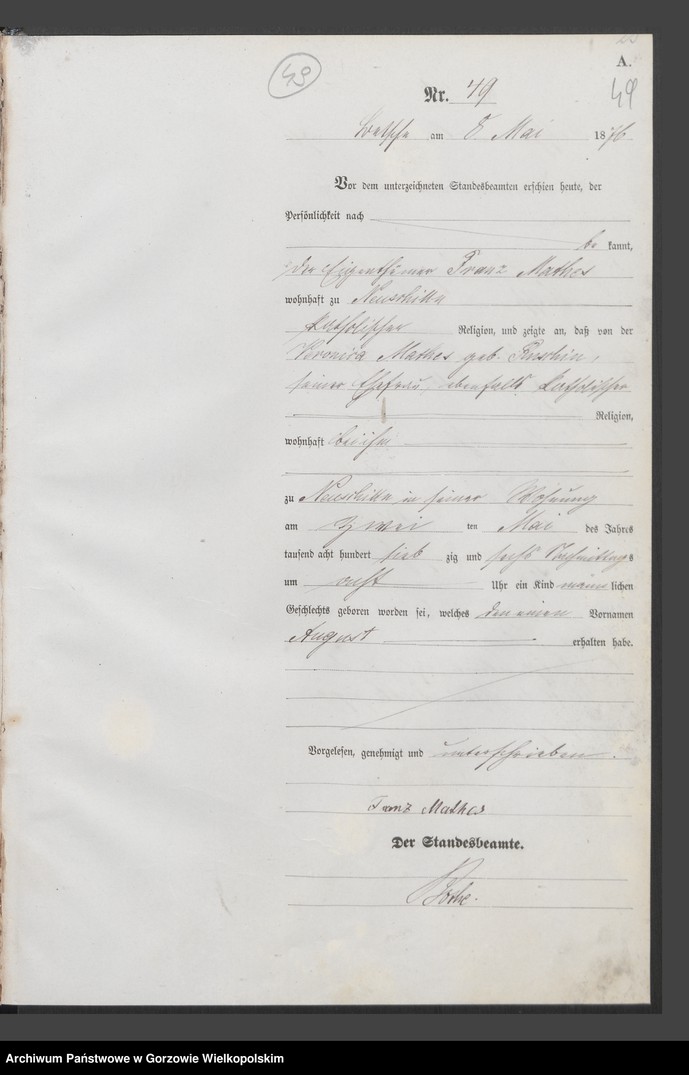 49
A.
49
Nr. 49
Betsche am 8 Mai 1876
Vor dem unterzeichneten Standesbeamten erschien heute, der
Persönlichkeit nach
be kannt,
der Eigenthümer Franz Mathes
wohnhaft zu
katholischer Religion, und zeigte an, daß von der
Veronica Mathes geb.
seiner Ehefrau, ebenfalls katholischer
Religion,
wohnhaft bei ihm
zu in seiner Wohnung
am zwei ten Mai des Jahres
tausend acht hundert sieb zig und sechs Vormittags
um acht Uhr ein Kind männ lichen
Geschlechts geboren worden sei, welches den einen Vornamen
August erhalten habe.
Vorgelesen, genehmigt und unterschrieben.
Franz Mathes
Der Standesbeamte.
Archiwum Państwowe w Gorzowie Wielkopolskim